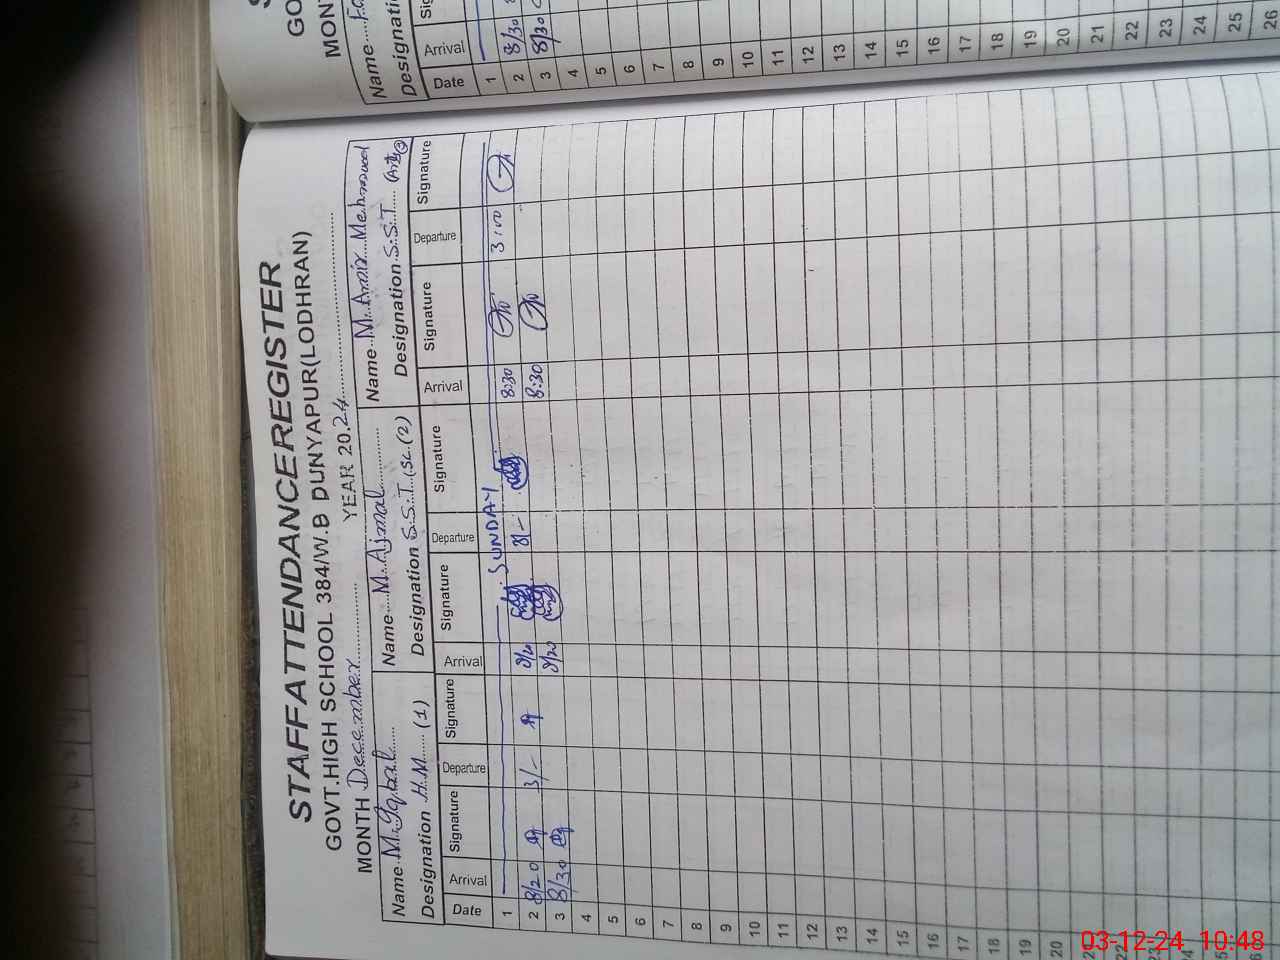 STAFF ATTENDANCE REGISTER
GOVT. HIGH SCHOOL 384/W.B DUNYAPUR (LODHRAN)
MONTH December YEAR 2024
Name M. Iqbal Name M. Ajmal Name M. Amir Mehmood
Designation H.M (1) Designation S.S.T (Sc.(2) Designation S.S.T (Arts
Date Arrival Signature Departure Signature Arrival Signature Departure Signature Arrival Signature Departure Signature
1 SUNDAY
2 8/20 3/- 8/20 3/- 8:30 3:00
3 8/30 8/20 8:30
4
5
6
7
8
9
10
11
12
13
14
15
16
17
18
19
20
21
22
23
24
25
GO
MON
Name
Designati
Date Arrival Sig
1
2 8/30
3 8/30
4
5
6
7
8
9
10
11
12
13
14
15
16
17
18
19
20
21
22
23
24
25
26
03-12-24 10:48